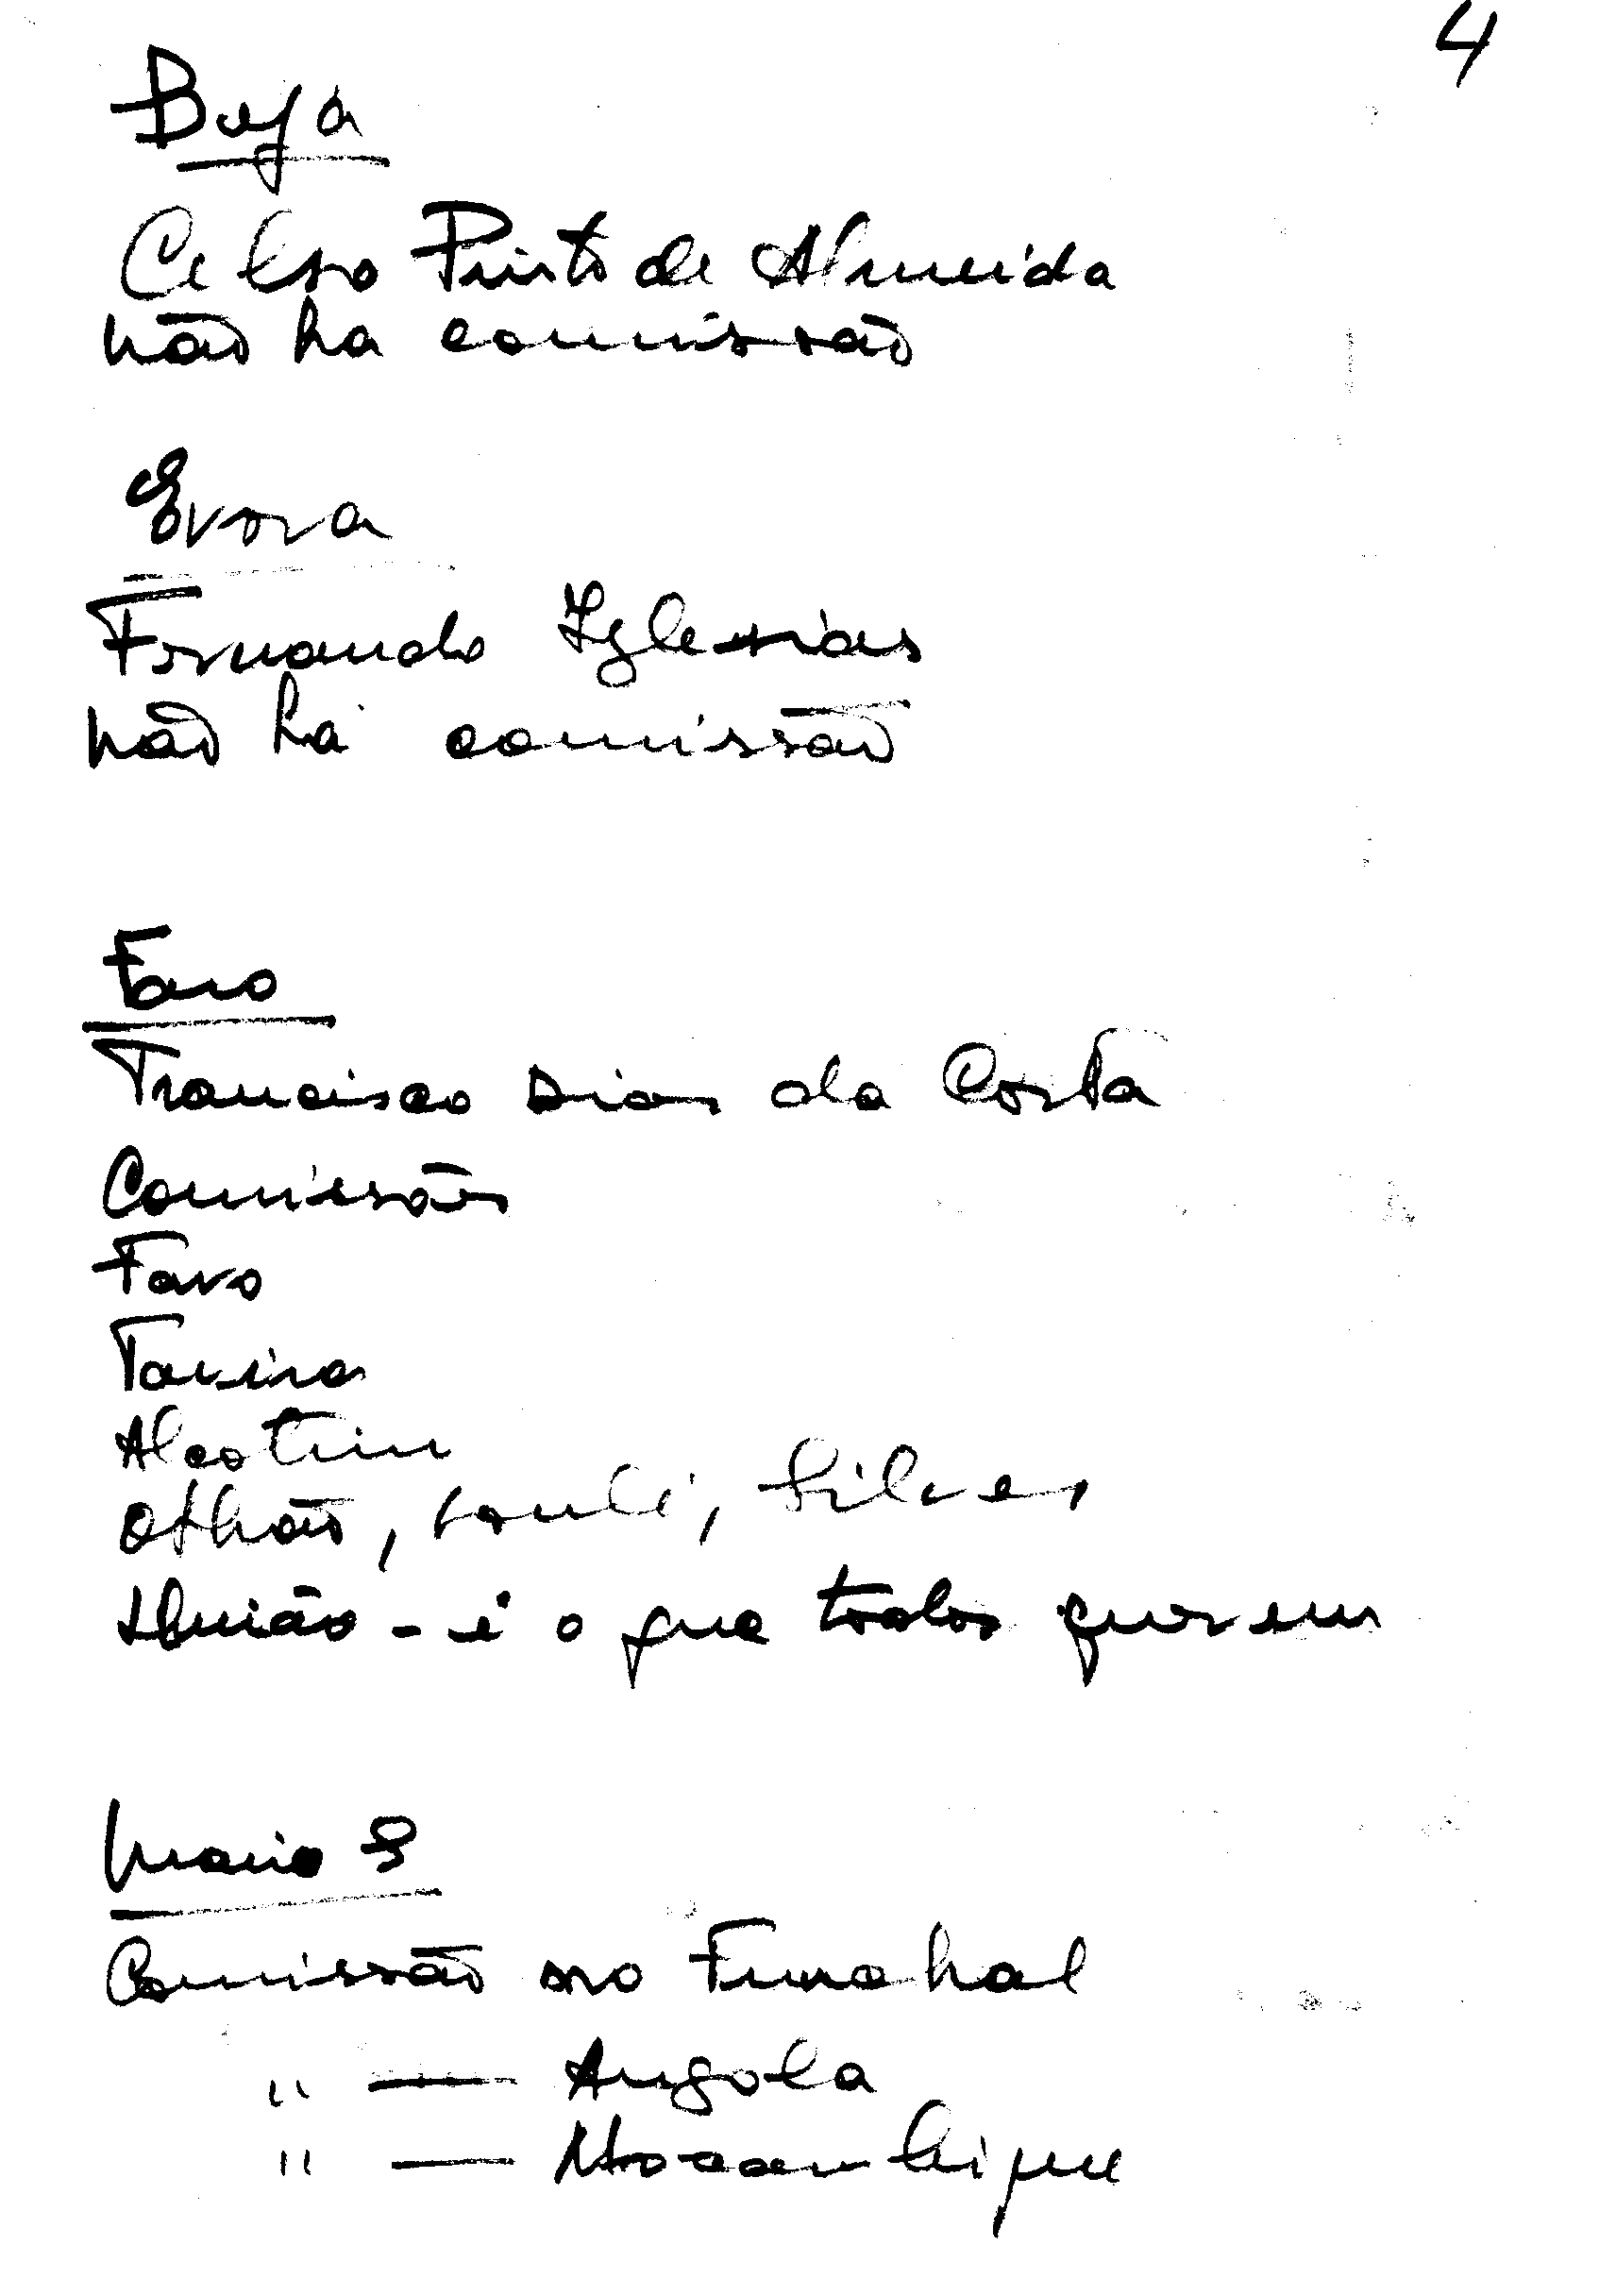 4
Beja
Celso Pinto de Almeida
não ha comissão
Evora
Fernando Iglesias
não há comissão
Faro
Francisco Dias da Costa
Comissões
Faro
Tavira
Alcotim
Olhão, Loulé, Silves
União - é o que todos querem
Mario S
Comissão no Funchal
" — Angola
" — Mocambique